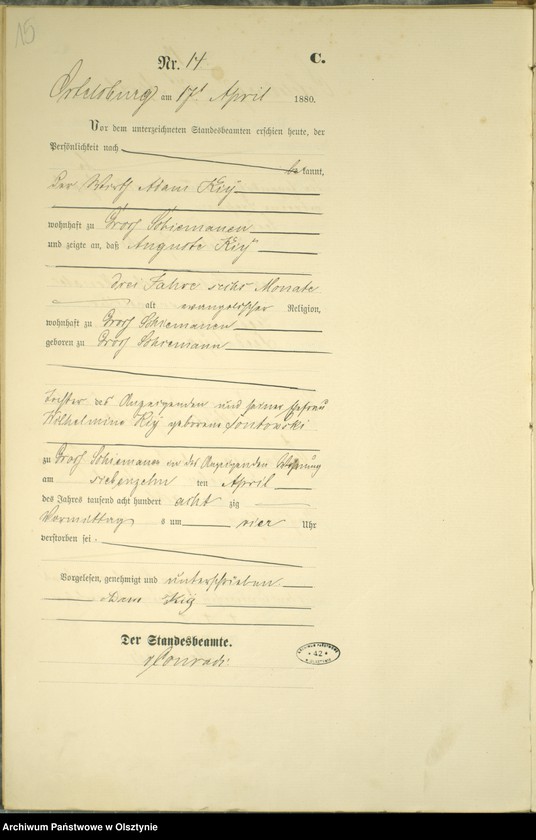 15
Nr. 14 C.
Ortelsburg am 17t April 1880.
Vor dem unterzeichneten Standesbeamten erschien heute, der
Persönlichkeit nach
be kannt,
der Wirth Adam Kiy
wohnhaft zu Groß Schiemanen
und zeigte an, daß Auguste Kiy
drei Jahre sechs Monate
alt evangelischer Religion,
wohnhaft zu Groß Schiemanen
geboren zu Groß Schiemanen
Tochter des Anzeigenden und seiner Ehefrau
Wilhelmine Kiy geborene
zu Groß Schiemanen in des Anzeigenden Wohnung
am siebenzehn ten April
des Jahres tausend acht hundert acht zig
Vormittag s um vier Uhr
verstorben sei.
Vorgelesen, genehmigt und unterschrieben
Adam Kiy
Der Standesbeamte.
Conrad
ARCHIWUM PAŃSTWOWE
* 42 *
W OLSZTYNIE
Archiwum Państwowe w Olsztynie